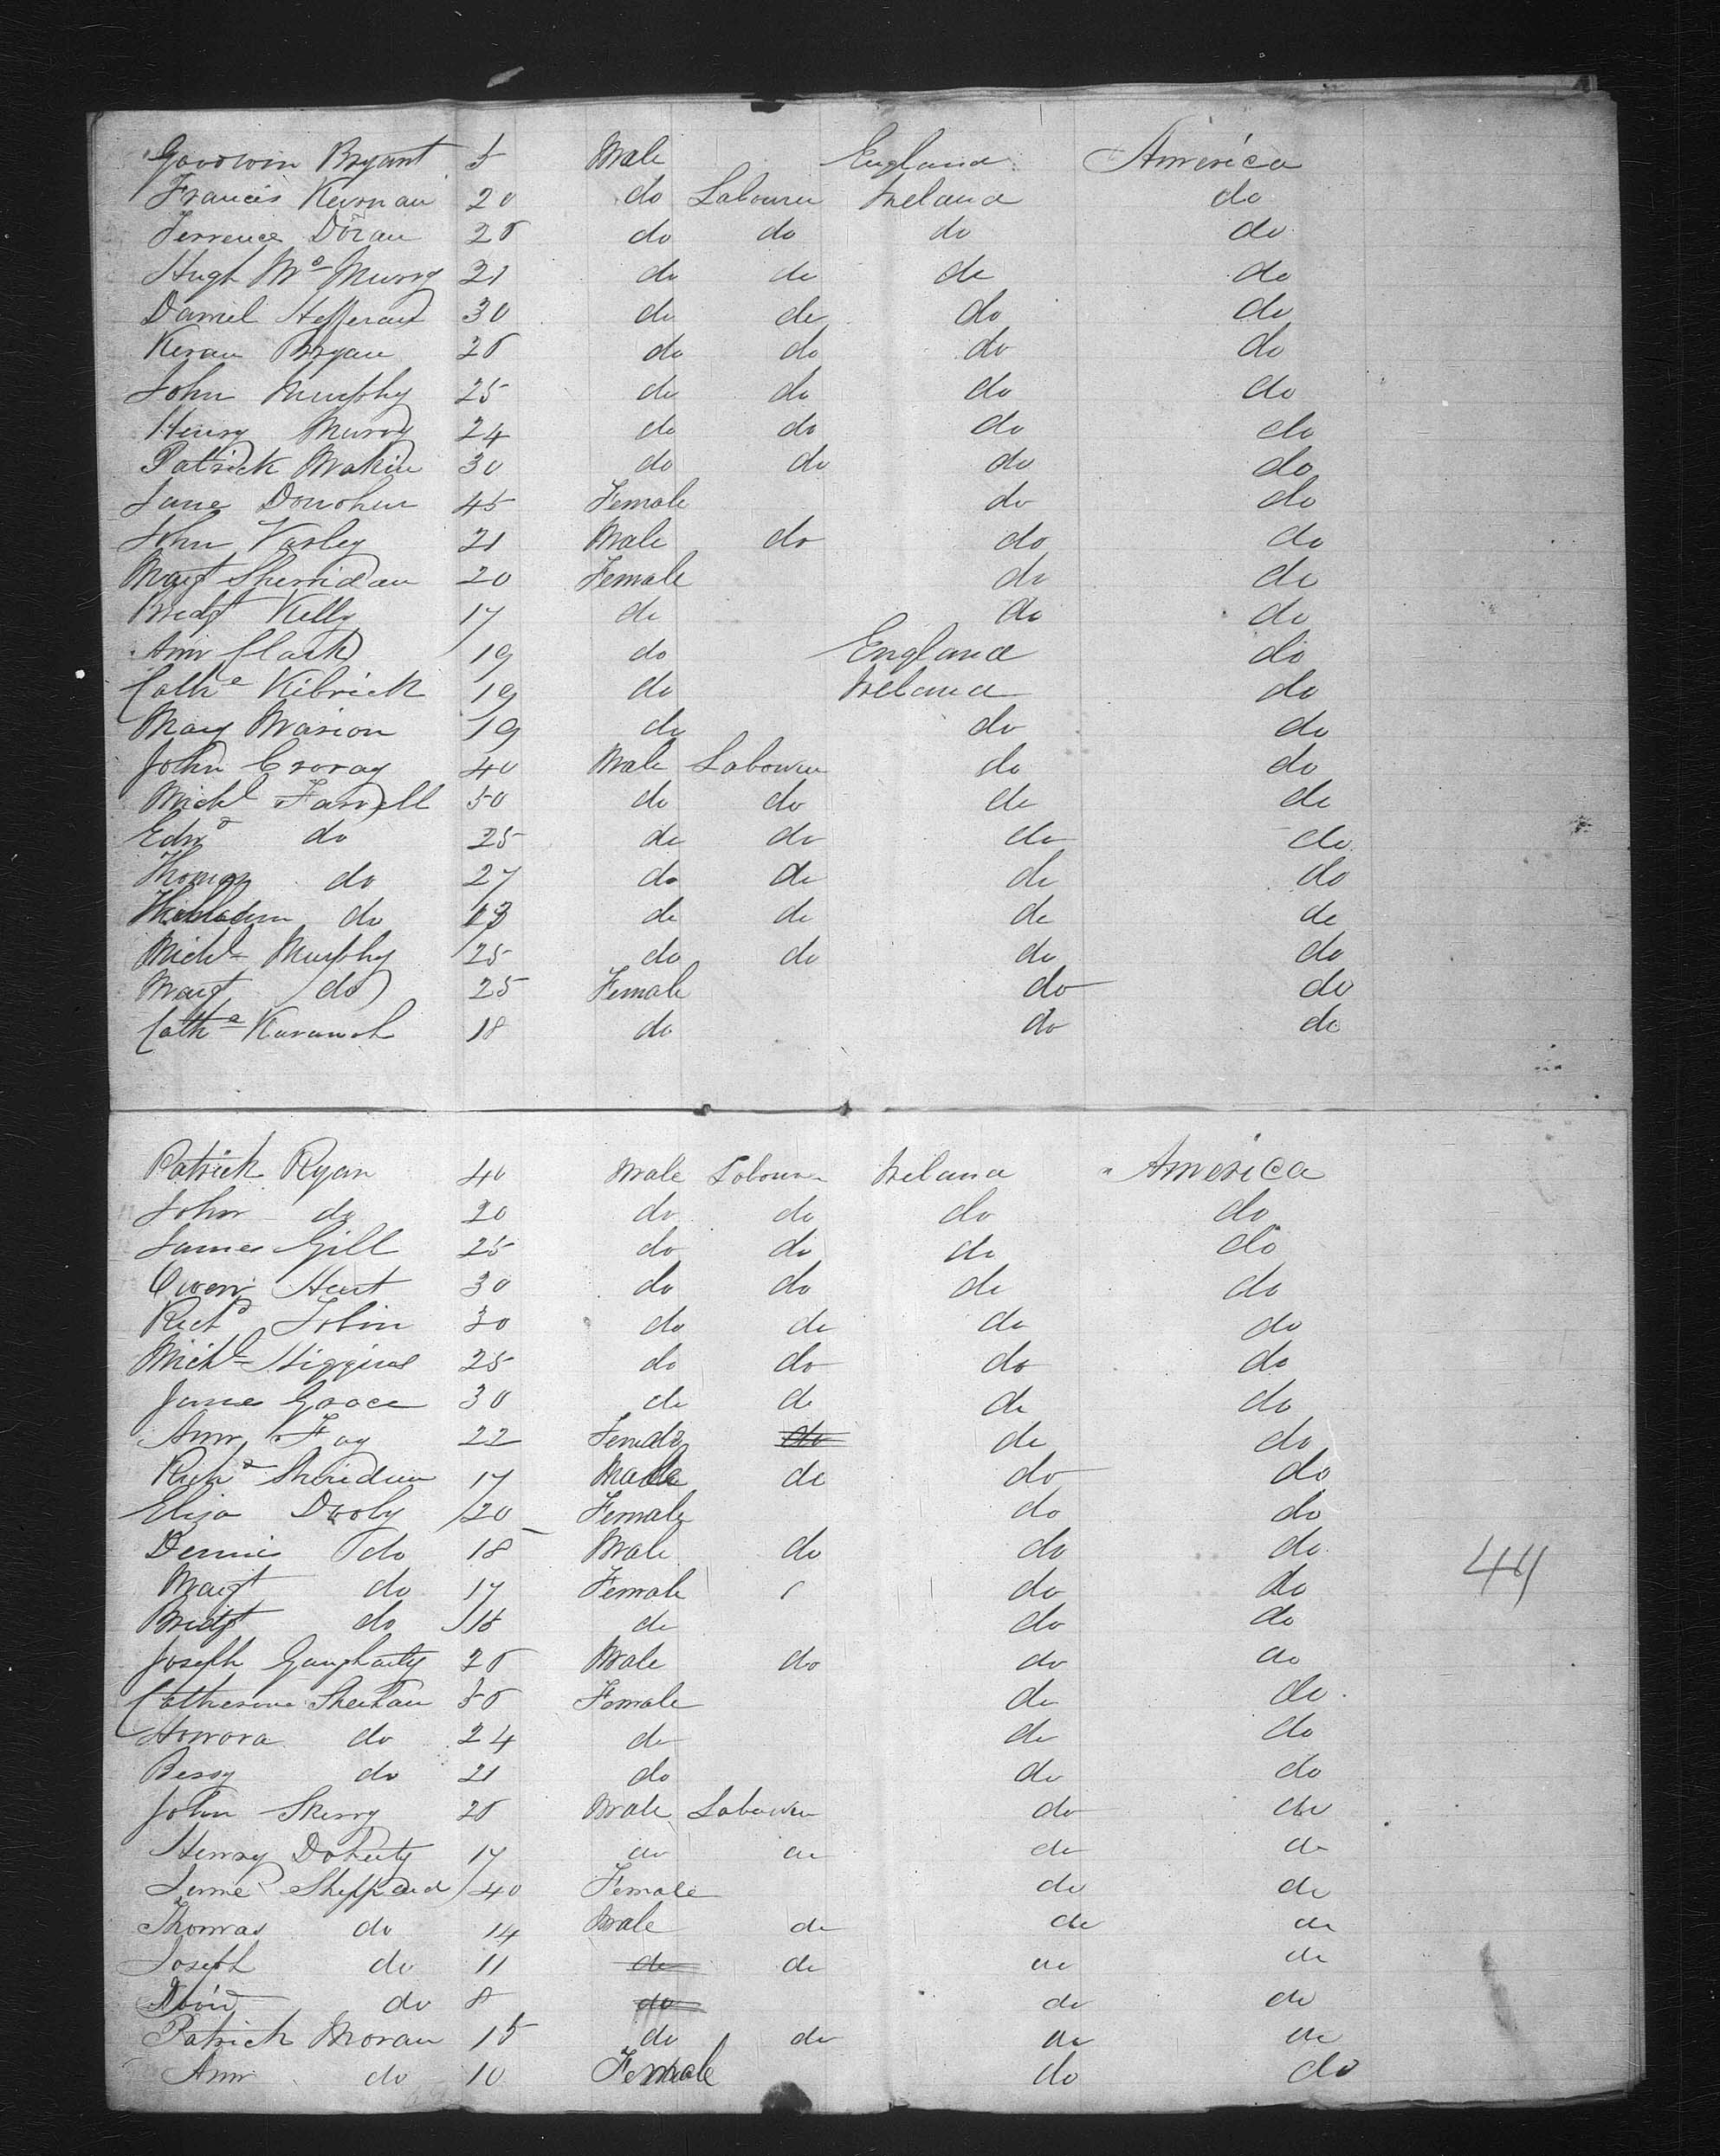 Goodwin Bryant 5 Male England America
Francis Keirnan 20 do Labourer Ireland do
Terrence Doran 20 do do do do
Hugh Mc Murry 21 do do do do
Daniel Hefferan 30 do do do do
Keran Bryan 20 do do do do
John Murphy 25 do do do do
Henry Murry 24 do do do do
Patrick Makin 30 do do do do
Jane Donohue 45 Female do do
John Varley 21 Male do do do
Margt Sherridan 20 Female do do
Bridgt Kelly 17 do do do
Ann Clark 19 do England do
Cathe Kibrick 19 do Ireland do
Mary Marion 19 do do do
John Croray 40 Male Labourer do do
Michl Farrell 50 do do do do
Edwd do 25 do do do do
Thomas do 27 do do do do
do 13 do do do do
Michl Murphy 25 do do do do
Margt do 25 Female do do
Cathe Kavanah 18 do do do
Patrick Ryan 40 Male Labourer Ireland America
John do 20 do do do do
James Gill 25 do do do do
Owen Hart 30 do do do do
Richd Tobin 30 do do do do
Michl Higgins 25 do do do do
James Grace 30 do do do do
Ann Fay 22 Female do do do
Richd Sheridan 17 Male do do do
Eliza Dooly 20 Female do do
Dennis do 18 Male do do do
Margt do 17 Female do do
Bridgt do 18 do do do
44
Joseph Gaugharty 20 Male do do do
Catherine Sheehan 50 Female do do
Honora do 24 do do do
Bessy do 21 do do do
John Skerry 20 Male Labourer do do
Henry Doherty 17 do do do do
Jane Sheppard 40 Female do do
Thomas do 14 Male do do do
Joseph do 11 do do do do
David do 8 do do do
Patrick Moran 15 do do do do
Ann do 10 Female do do